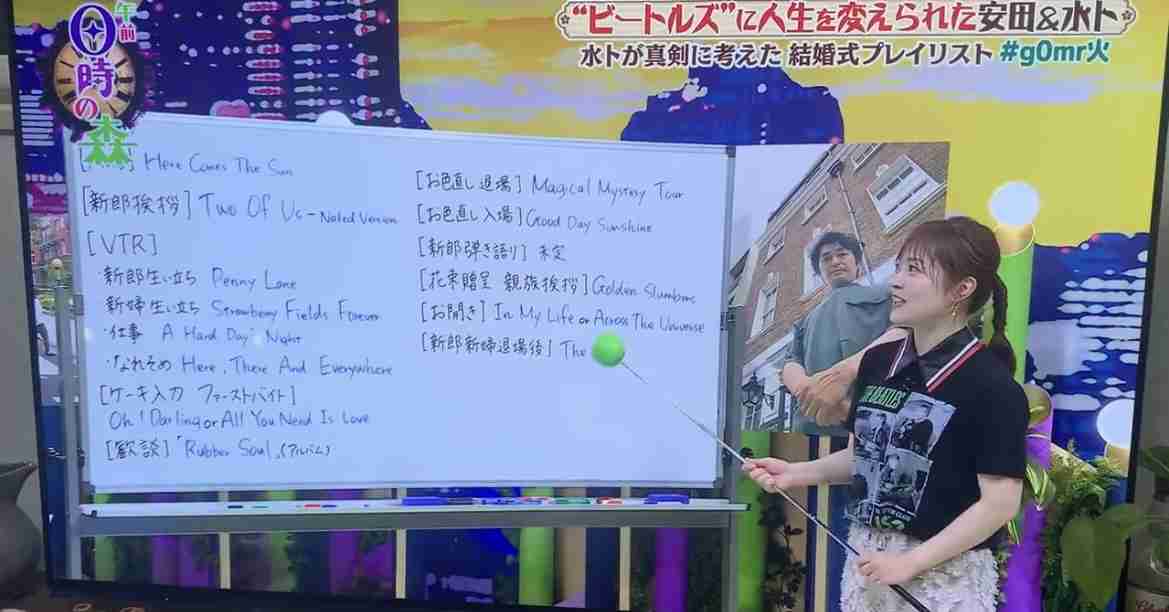 午前
0時の
森
“ビートルズ”に人生を変えられた安田&水卜
水卜が真剣に考えた 結婚式プレイリスト #g0mr火
Here Comes The Sun
[新郎挨拶] Two Of Us - Naked Version
[VTR]
・新郎生い立ち Penny Lane
・新婦生い立ち Strawberry Fields Forever
・仕事 A Hard Day's Night
・なれそめ Here, There And Everywhere
[ケーキ入刀 ファーストバイト]
Oh! Darling or All You Need Is Love
[歓談]「Rubber Soul」(アルバム)
[お色直し退場] Magical Mystery Tour
[お色直し入場] Good Day Sunshine
[新郎弾き語り] 未定
[花束贈呈 親族挨拶] Golden Slumbers
[お開き] In My Life or Across The Universe
[新郎新婦退場後] The
THE BEATLES